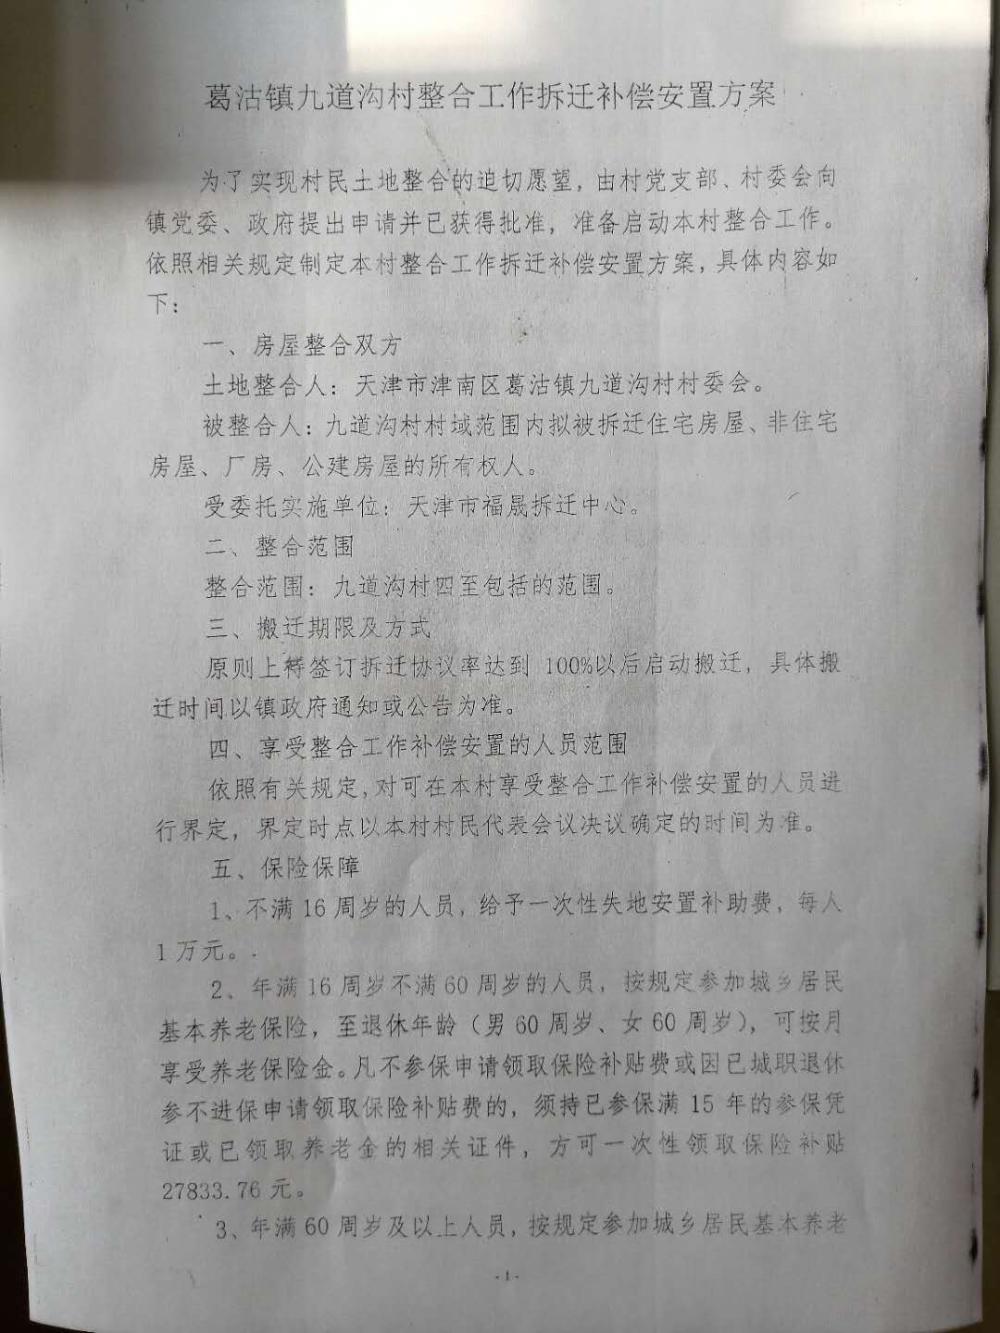 葛沽镇九道沟村整合工作拆迁补偿安置方案
为了实现村民土地整合的迫切愿望，由村党支部、村委会向
镇党委、政府提出申请并已获得批准，准备启动本村整合工作。
依照相关规定制定本村整合工作拆迁补偿安置方案，具体内容如
下：
一、房屋整合双方
土地整合人：天津市津南区葛沽镇九道沟村村委会。
被整合人：九道沟村村域范围内拟被拆迁住宅房屋、非住宅
房屋、厂房、公建房屋的所有权人。
受委托实施单位：天津市福晟拆迁中心。
二、整合范围
整合范围：九道沟村四至包括的范围。
三、搬迁期限及方式
原则上待签订拆迁协议率达到 100%以后启动搬迁，具体搬
迁时间以镇政府通知或公告为准。
四、享受整合工作补偿安置的人员范围
依照有关规定，对可在本村享受整合工作补偿安置的人员进
行界定，界定时点以本村村民代表会议决议确定的时间为准。
五、保险保障
1、不满 16 周岁的人员，给予一次性失地安置补助费，每人
1 万元。
2、年满 16 周岁不满 60 周岁的人员，按规定参加城乡居民
基本养老保险，至退休年龄（男 60 周岁、女 60 周岁），可按月
享受养老保险金。凡不参保申请领取保险补贴费或因已城职退休
参不进保申请领取保险补贴费的，须持已参保满 15 年的参保凭
证或已领取养老金的相关证件，方可一次性领取保险补贴
27833.76 元。
3、年满 60 周岁及以上人员，按规定参加城乡居民基本养老
- 1 -